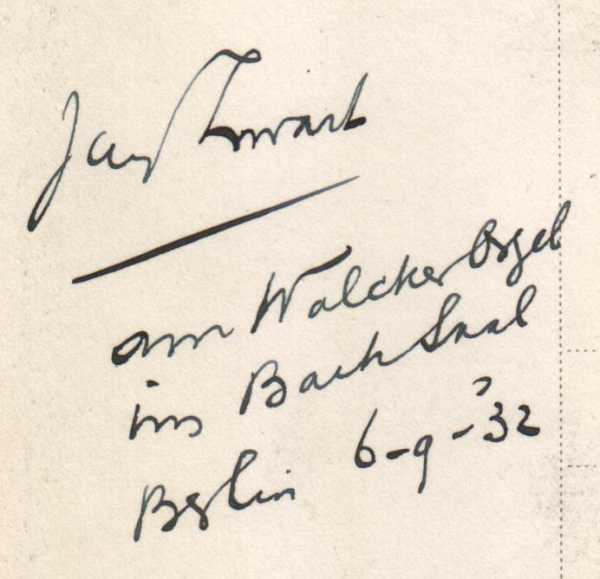 Jan Zwart
am Walcker Orgel
im Bach Saal
Berlin 6-9-'32